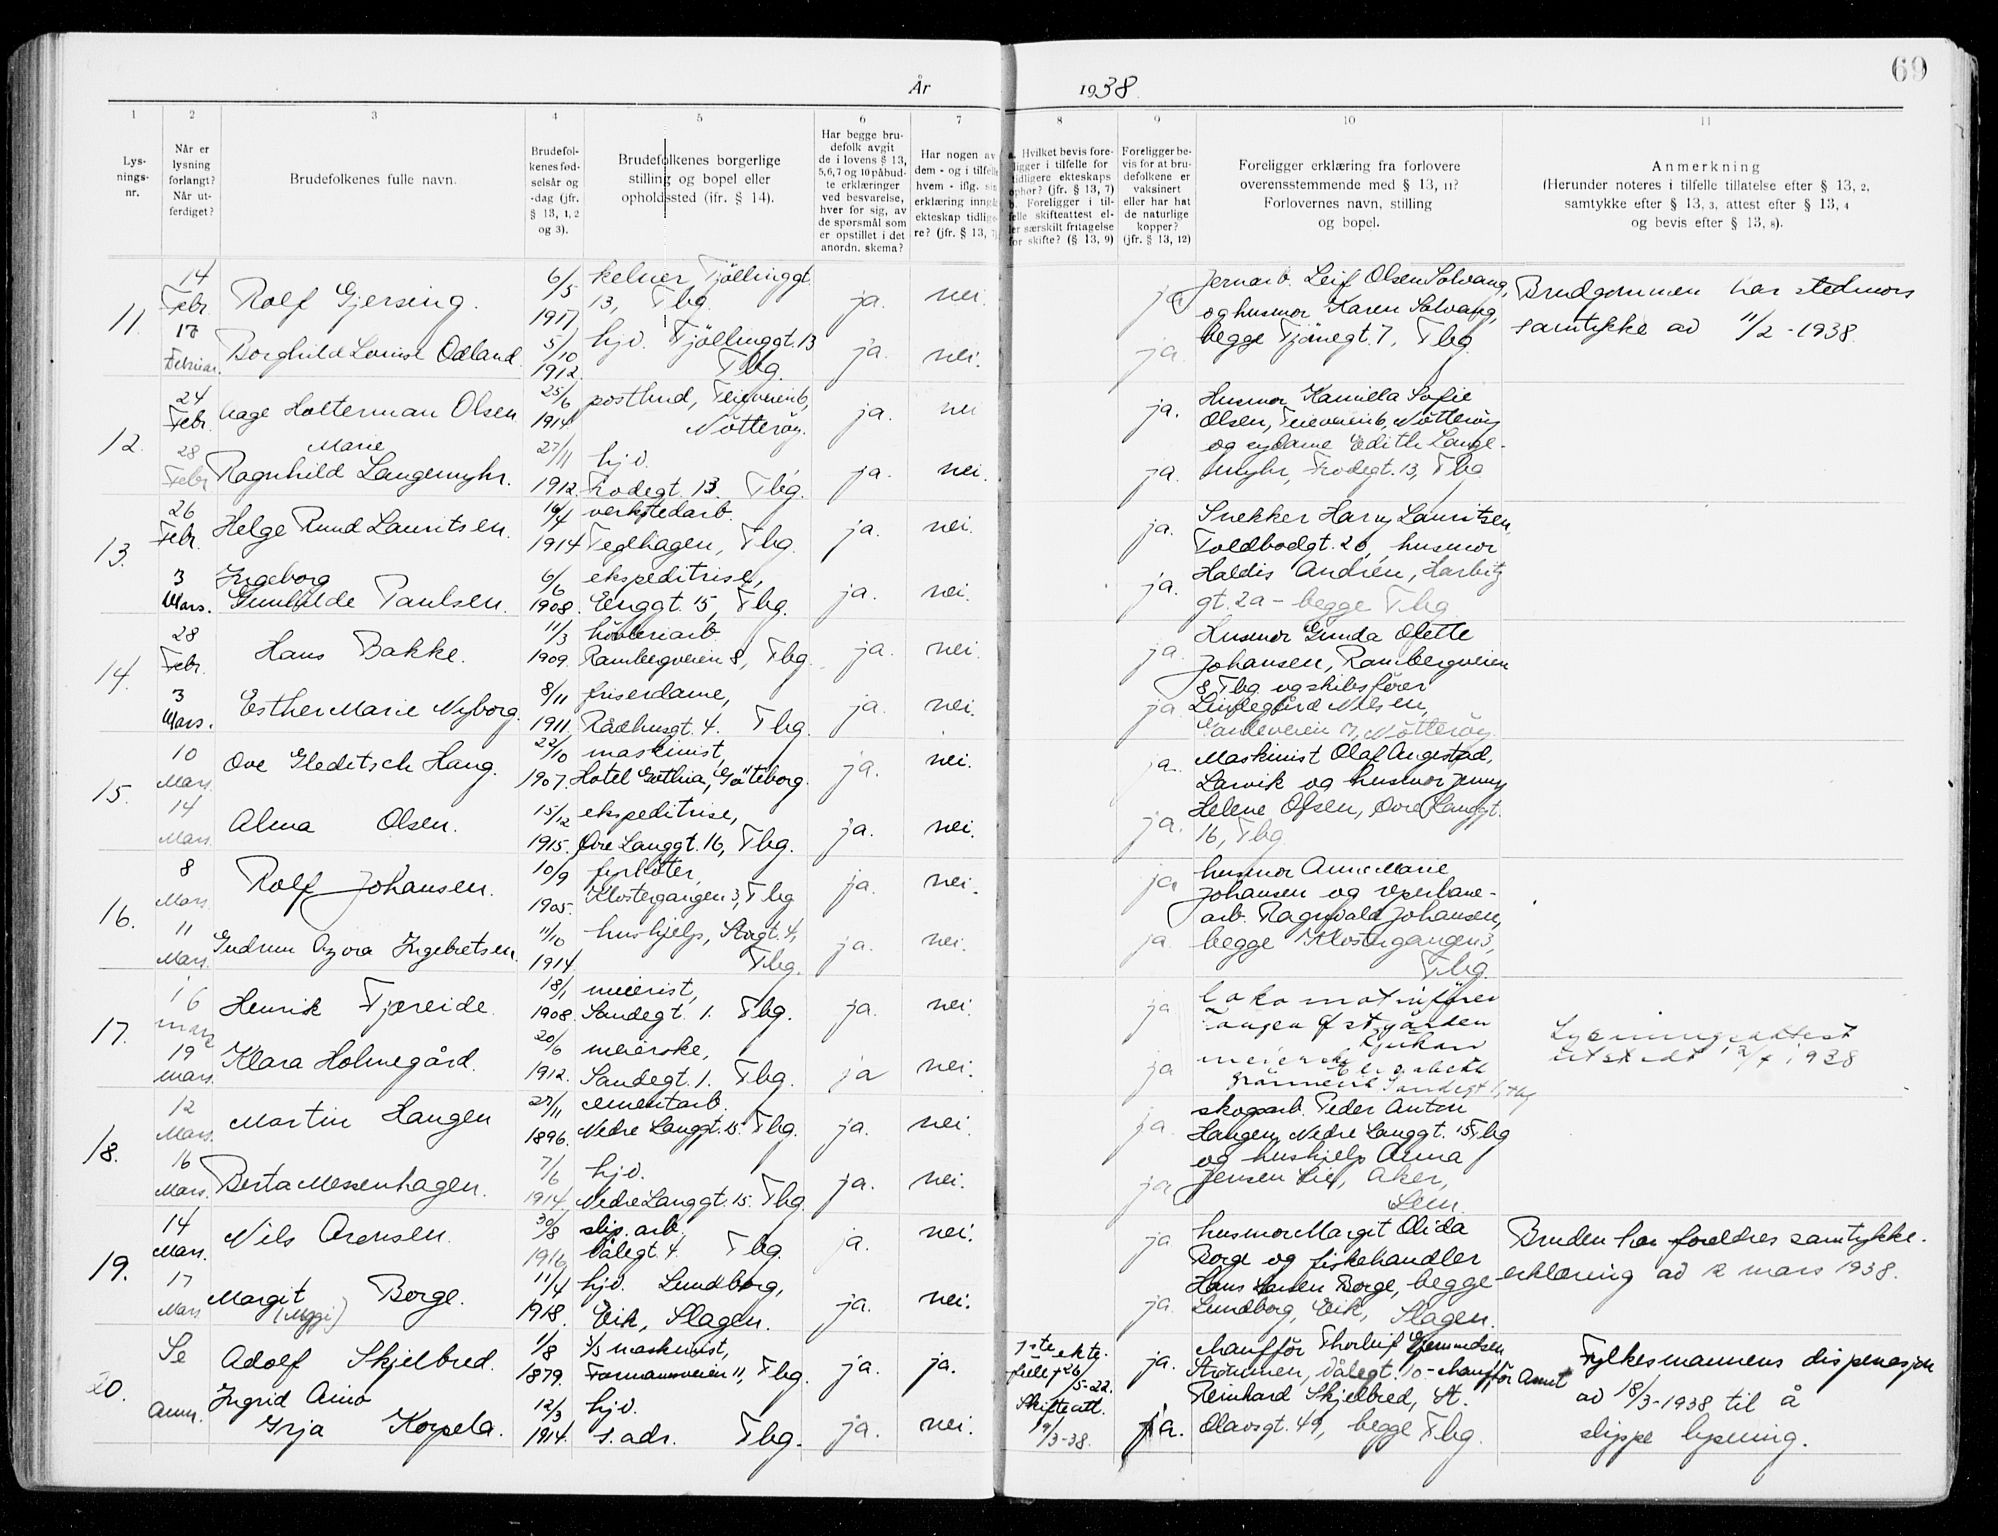 69
År 1938.
1 2 3 4 5 6 7 8 9 10 11
Lys-
nings-
nr.
Når er
lysning
forlangt?
Når ut-
ferdiget?
Brudefolkenes fulle navn.
Brudefol-
kenes fød-
selsår og
-dag (jfr.
§ 13, 1, 2
og 3).
Brudefolkenes borgerlige
stilling og bopel eller
opholdssted (jfr. § 14).
Har begge bru-
defolk avgit
de i lovens § 13,
5,6,7 og 10 påbud-
te erklæringer
ved besvarelse,
hver for sig, av
de spørsmål som
er opstillet i det
anordn. skema?
Har nogen av
dem - og i tilfelle
hvem - iflg. sin
erklæring inngå
ekteskap tidlige-
re? (jfr. § 13, 7)
a. Hvilket bevis fore-
ligger i tilfelle for
tidligere ekteskaps
ophør? (jfr. § 13, 7)
b. Foreligger i til-
felle skifteattest el-
ler særskilt fritagelse
for skifte? (§ 13, 9)
Foreligger be-
vis for at bru-
defolkene er
vaksinert
eller har hat
de naturlige
kopper?
(jfr. § 13, 12)
Foreligger erklæring fra forlovere
overensstemmende med § 13, 11?
Forlovernes navn, stilling
og bopel.
Anmerkning
(Herunder noteres i tilfelle tillatelse efter § 13, 2,
samtykke efter § 13, 3, attest efter § 13, 4
og bevis efter § 13, 8).
11.
14
Febr
Rolf Gjersing.
6/5
1917
kelner Tjøllinggt.
13, Tbg.
ja. nei. ja
Jernarb. Leif Olsen Solvang,
og husmor Karen Solvang,
begge Tjømegt. 7, Tbg.
Brudgommen har stedmors
samtykke av 11/2 - 1938.
17
Februar.
Borghild Louise Odland.
5/10
1912.
hjv. Tjøllinggt. 13
Tbg.
ja. nei. ja.
12.
24
Febr.
Aage Holterman Olsen
25/6
1914
postbud, Teieveien 6,
Nøtterøy.
ja. nei ja.
Husmor Kamilla Sofie
Olsen, Teieveien 6, Nøtterøy
og sydame Edith Lange-
myhr, Frodegt. 13, Tbg.
28
Febr
Marie
Ragnhild Langemyhr.
27/11
1912.
hjv.
Frodegt. 13. Tbg.
ja. nei. ja.
13.
26
Febr.
Helge Rund Lauritsen.
16/4
1914
verkstedarb.
Teglhagen, Tbg.
ja. nei. ja.
Snekker Harry Lauritsen,
Toldbodgt. 20, husmor
Haldis Andrén, Harbitz
gt. 2a - begge Tbg
3
Mars.
Ingeborg
Gunhilde Paulsen.
6/6
1908.
ekspeditrise,
Enggt. 15, Tbg.
ja. nei. ja.
14.
28
Febr.
Hans Bakke.
11/3
1909.
høvleriarb
Rambergveien 8, Tbg.
ja. nei. ja
Husmor Gunda Olette
Johansen, Rambergveien
8 Tbg og skibsfører
Lindegård Nilsen,
7, Nøtterøy.
3
Mars.
Esther Marie Nyborg.
8/11
1911.
friserdame,
Rådhusgt. 4. Tbg.
ja. nei. ja
15.
10
Mars.
Ove Gleditsch Haug.
22/10
1907.
maskinist,
Hotel Gothia, Göteborg.
ja. nei. ja.
Maskinist Olaf Angestad,
Larvik og husmor Jenny
Helene Olsen, Øvre Langgt.
16, Tbg
14
Mars.
Alma Olsen.
15/12
1915.
ekspeditrise,
Øvre Langgt. 16, Tbg.
ja. nei. ja.
16.
8
Mars.
Rolf Johansen.
10/9
1905.
fyrbøter,
Klostergangen 3, Tbg
ja. nei. ja
husmor Anne Marie
Johansen og reperbane-
arb. Ragnvald Johansen,
begge Klostergangen 3,
Tbg.
11
Mars.
Gudrun Azora Ingebretsen.
11/10
1914
hushjelp, Storgt. 4,
Tbg.
ja. nei. ja.
17.
16
mars
Henrik Tjæreide.
18/1
1908.
meierist,
Sandegt. 1. Tbg.
ja. nei. ja
lokomotivfører
Rjukan
meierske Elisabeth
Sandegt 1, Tbg
Lysningsattest
utstedt 12/4 1938
19
mars.
Klara Holmegård.
20/6
1912.
meierske,
Sandegt. 1. Tbg.
ja nei. ja
18.
12
Mars.
Martin Haugen
27/11
1896.
sementarb.
Nedre Langgt. 15. Tbg.
ja. nei. ja.
skogsarb. Peder Anton
Haugen, Nedre Langgt. 15 Tbg
og hushjelp Anna
Jensen Lie, Aker,
Sem.
16
Mars.
Berta Messenhagen.
7/6
1914.
hjv.
Nedre Langgt. 15. Tbg.
ja. nei. ja
19.
14
Mars.
Nils Arensen.
30/8
1916
slip. arb.
Vålegt. 4. Tbg.
ja. nei. ja
husmor Margit Alida
Borge og fiskehandler
Hans Larsen Borge, begge
Lundborg, Eik, Slagen.
Bruden har foreldres samtykke-
erklæring av 12 mars 1938.
17
Mars
Margit Borge.
(Moggi)
11/4
1918.
hjv. Lundborg,
Eik, Slagen.
ja. nei. ja.
20.
Se
Adolf Skjelbred.
1/8
1879.
1/3 maskinist,
Farmannsveien 11, Tbg.
ja. ja.
1ste ekte-
felle † 26/5-22.
Skifteatt.
19/3-38.
ja.
chauffør Thorleif Gjermundsen
Strømmen, Vålegt. 10 - chauffør Arnt
Reinhard Skjelbred, St.
Olavsgt. 49, begge Tbg.
Fylkesmannens dispensasjon
av 18/3-1938 til å
slippe lysning.
Anm.
Ingrid Aino
Irja Korpela.
12/3
1914.
hjv.
s. adr. Tbg.
ja. nei. ja.